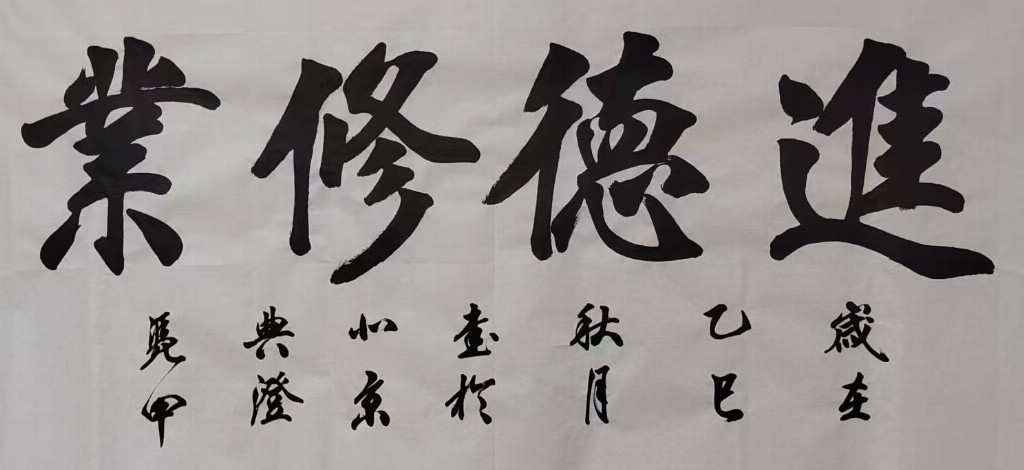 進德修業
歲在
乙巳
秋月
書於
北京
典澄
甲